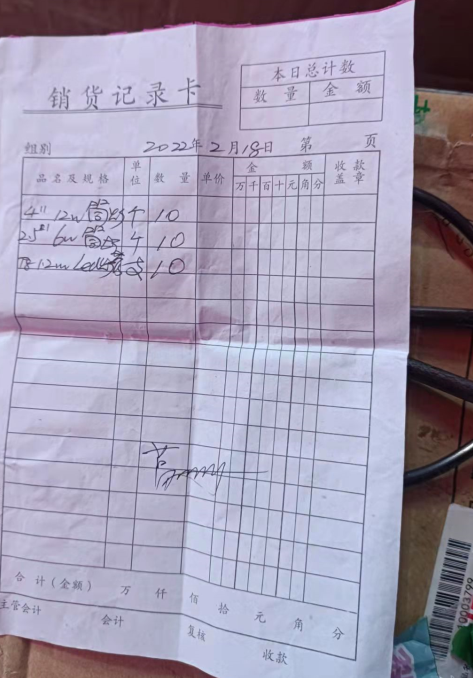 本日总计数
数量 金额
销货记录卡
组别 2022年2月18日 第 页
品名及规格 单位 数量 单价 金额 收款盖章
万千百十元角分
4" 12w 10
2.5" 6w 10
T8 12w Led 支 10
合计(金额) 万 仟 佰 拾 元 角 分
主管会计 会计 复核 收款